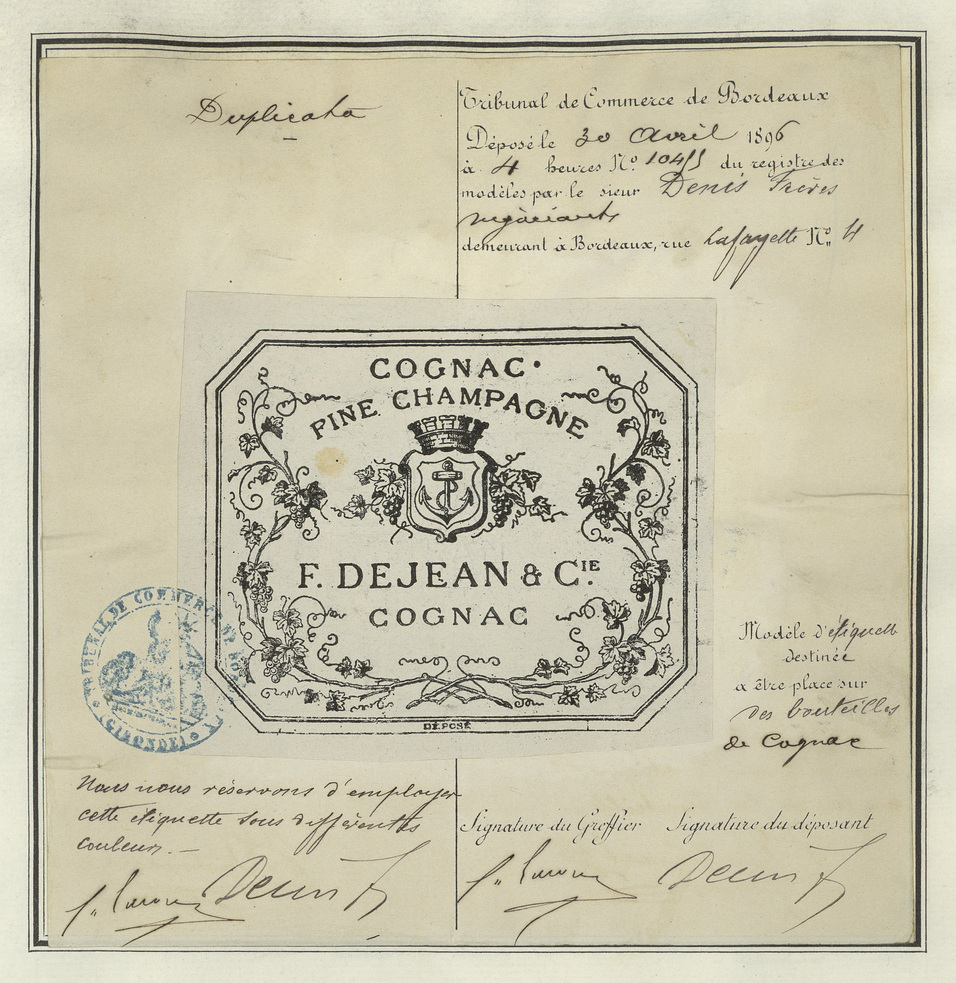 Duplicata
Tribunal de Commerce de Bordeaux
Déposé le 30 Avril 1896
à 4 heures Nº du registre des
modèles par le sieur Denis Frères
négociants
demeurant à Bordeaux, rue Lafayette Nº 4
COGNAC
FINE CHAMPAGNE
F. DEJEAN & CIE.
COGNAC
DÉPOSÉ
TRIBUNAL DE COMMERCE DE BORDEAUX
(GIRONDE)
Modèle d'étiquette
destinée
a être place sur
des bouteilles
de Cognac
Nous nous réservons d'employer
cette étiquette sous différentes
couleurs. —
Signature du Greffier Signature du déposant
Denis F
Denis F